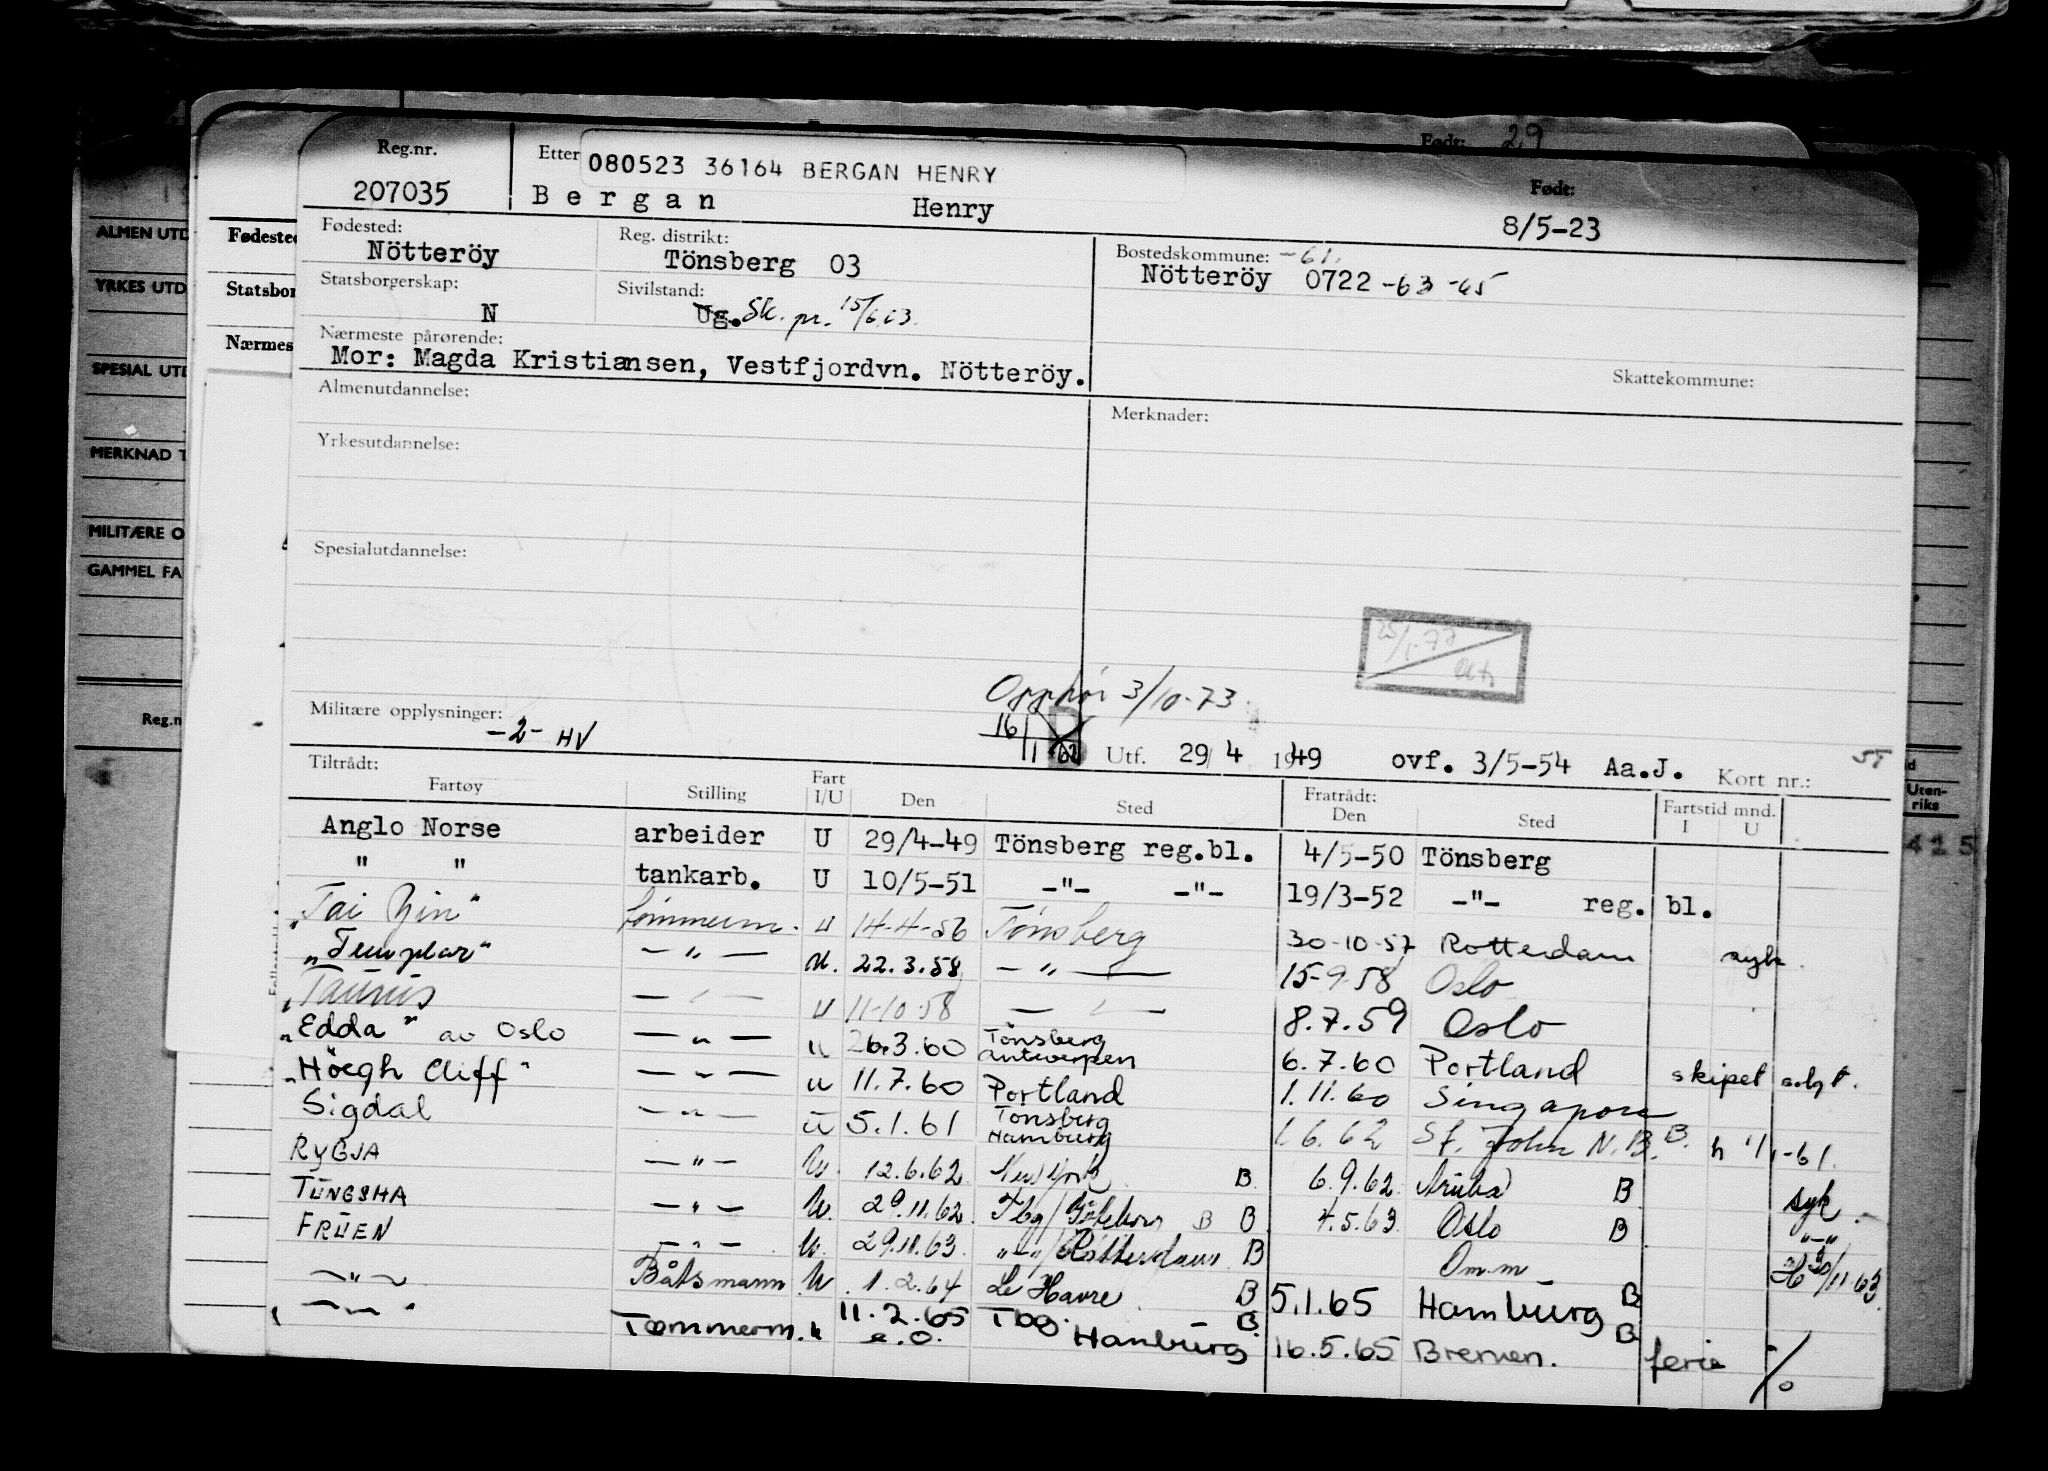 Født: 29
Reg.nr. Etter 080523 36164 BERGAN HENRY Født:
207035 Bergan Henry 8/5-23
ALMEN UTD
Fødested
Fødested: Reg. distrikt: Bostedskommune: -61.
Nötteröy Tönsberg 03 Nötteröy 0722 -63 -65
YRKES UTD
Statsbor
Statsborgerskap: Sivilstand:
N Ug. Sk. pr. 15/6.63.
Nærmes
Nærmeste pårørende:
Mor: Magda Kristiansen, Vestfjordvn. Nötteröy. Skattekommune:
SPESIAL UTD
Almenutdannelse: Merknader:
Yrkesutdannelse:
MERKNAD T
MILITÆRE O
Spesialutdannelse:
GAMMEL FA
25/1-77
Opphör 3/10-73.
Reg.n
Militære opplysninger:
-2- HV 16/1
Utf. 29/4 1949 ovf. 3/5-54 Aa.J. Kort nr.:
Tiltrådt: Fratrådt: Fartstid mnd.
Fartøy Stilling Fart I/U Den Sted Den Sted I U
Uten-
riks
415
Anglo Norse arbeider U 29/4-49 Tönsberg reg.bl. 4/5-50 Tönsberg
" " tankarb. U 10/5-51 -"- -"- 19/3-52 -"- reg. bl.
"Tai Yin" tömmerm. U 14-4-56 Tönsberg 30-10-57 Rotterdam syk.
"Templar" -"- U. 22.3.58 -"- 15-9-58 Oslo
"Taurus -"- U 11-10-58 -"- 8.7.59 Oslo
"Edda" av Oslo -"- U 26.3.60 Tönsberg Antwerpen 6.7.60 Portland skipet solgt.
"Höegh Cliff" -"- U 11.7.60 Portland 1.11.60 Singapore
Sigdal -"- U 5.1.61 Tönsberg Hamburg 1.6.62 St. John N.B. B. h 1/1-61.
RYGJA -"- U. 12.6.62 New York B 6.9.62 Aruba B syk.
TUNGSHA -"- U. 29.11.62 Tbg/Göteborg B B 4.5.63 Oslo B -"-
FRUEN -"- U. 29.11.63 -"-/Rotterdam B Om.m H 30/11 63
-"- Båtsmann U. 1.2.64 Le Havre B 5.1.65 Hamburg B
-"- Tømmerm. U 11.2.65 e.o. Tbg. Hamburg B 16.5.65 Bremen. B ferie